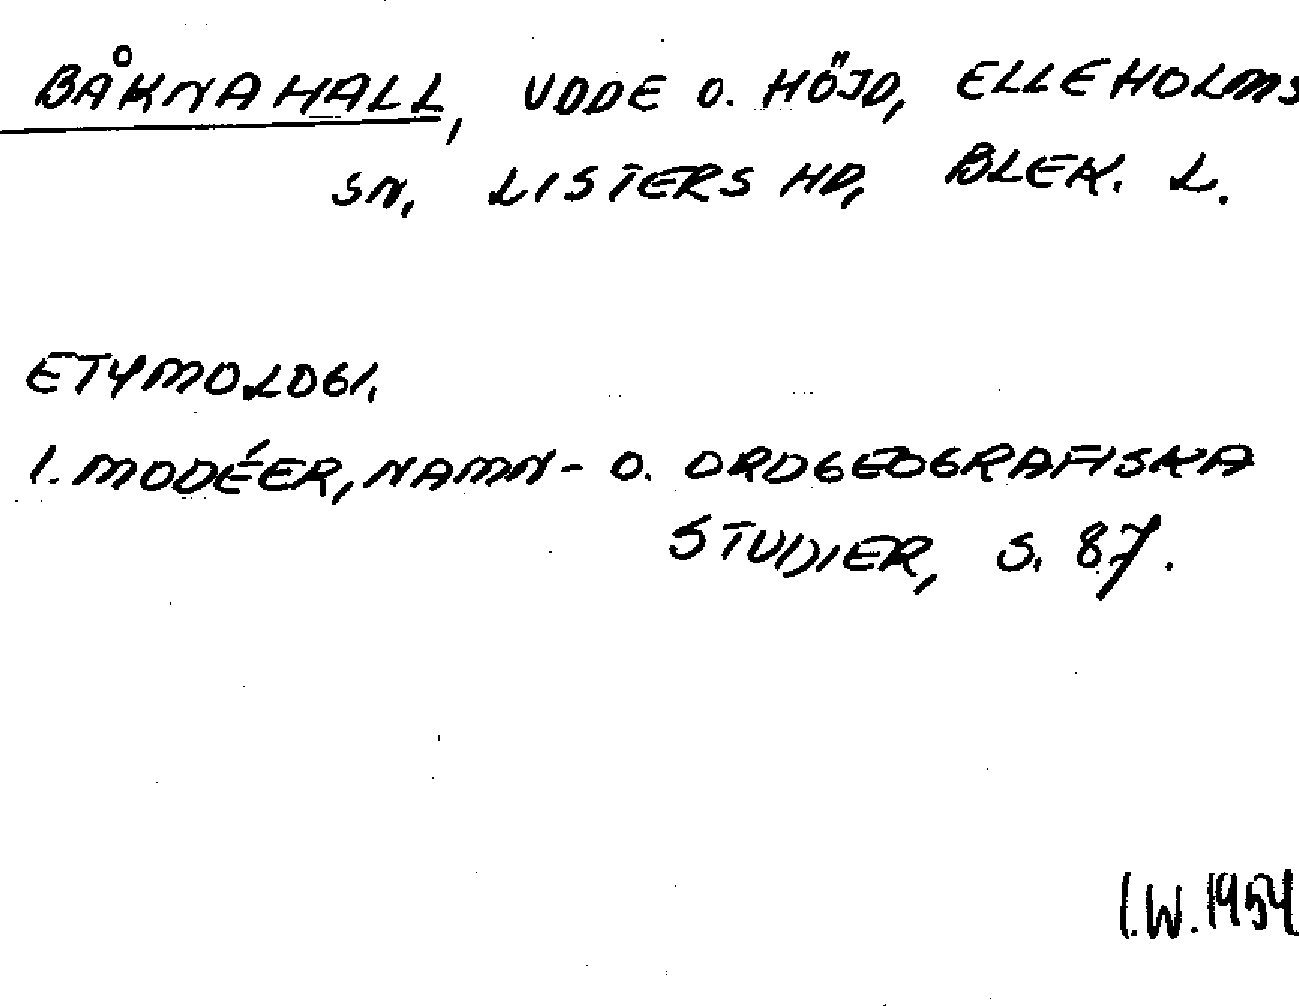 BÅKNAHALL, UDDE O. HÖJD, ELLEHOLMS
SN, LISTERS HD, BLEK. L.
ETYMOLOGI.
I. MODÉER, NAMN- O. ORDGEOGRAFISKA
STUDIER, S. 87.
I.W. 1954